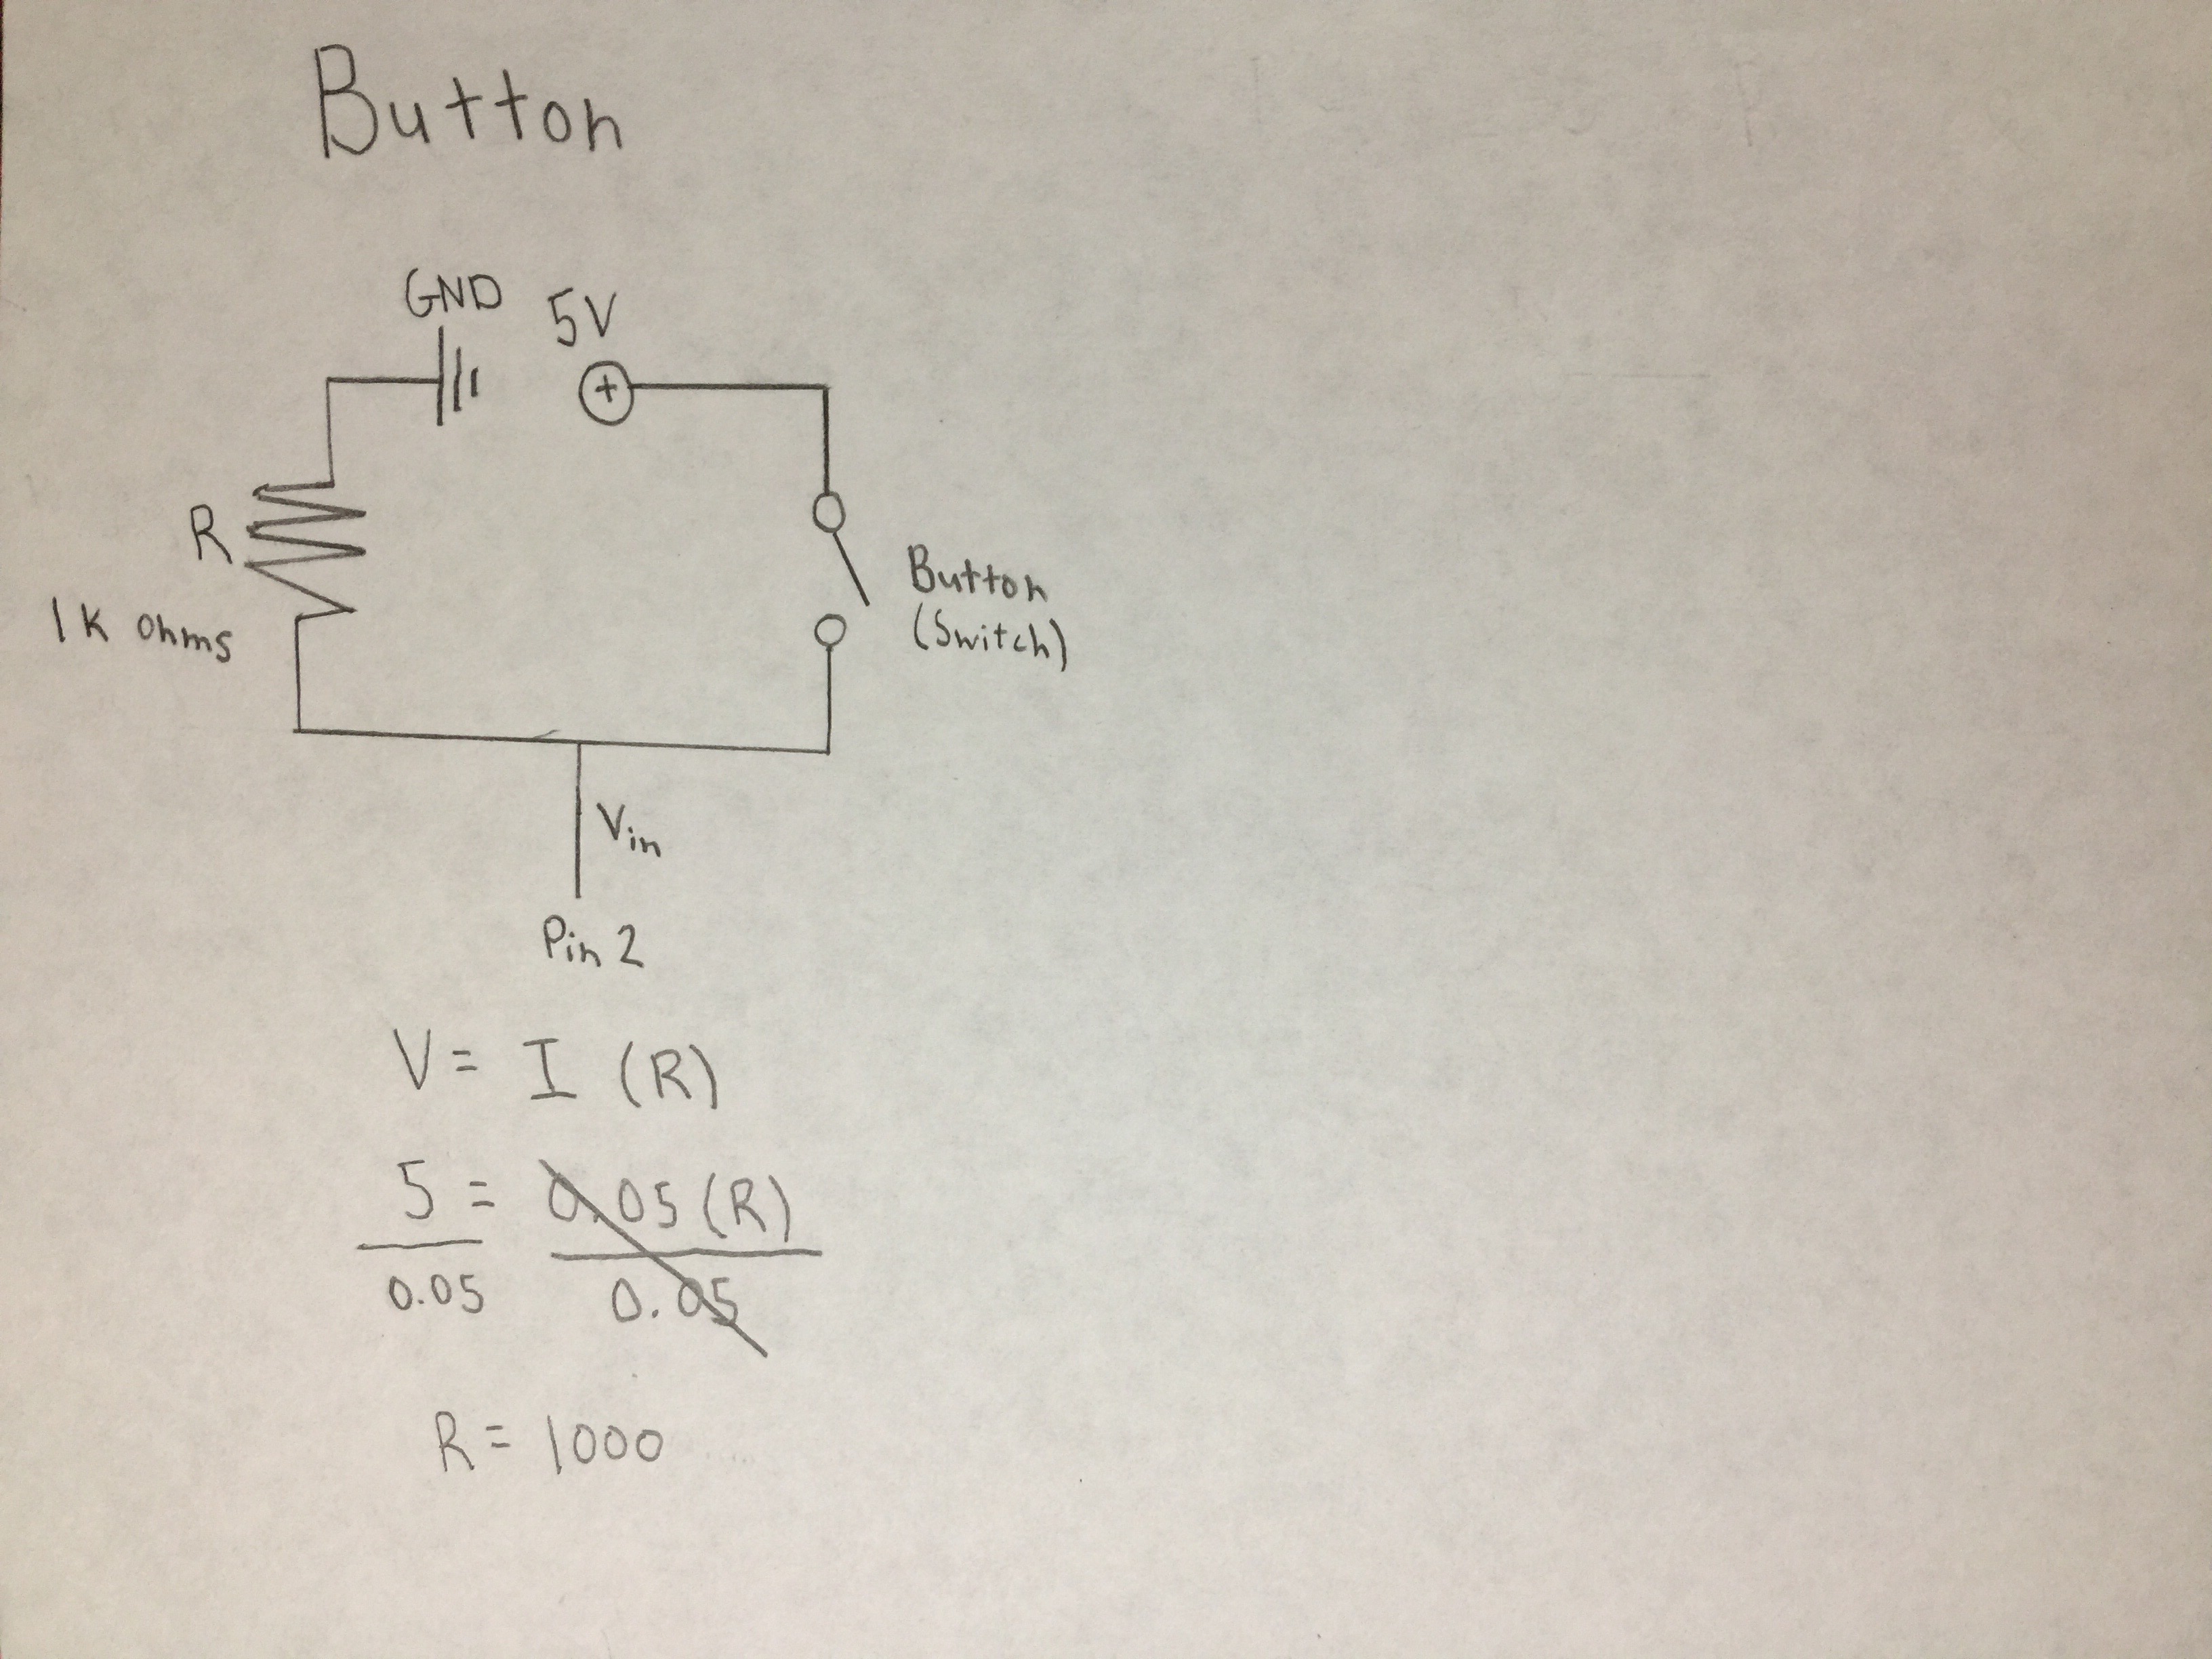 Button
GND
5V
+
R
1K ohms
Button
(Switch)
Vin
Pin 2
V = I (R)
5 = 0.05 (R)
0.05 0.05
R = 1000